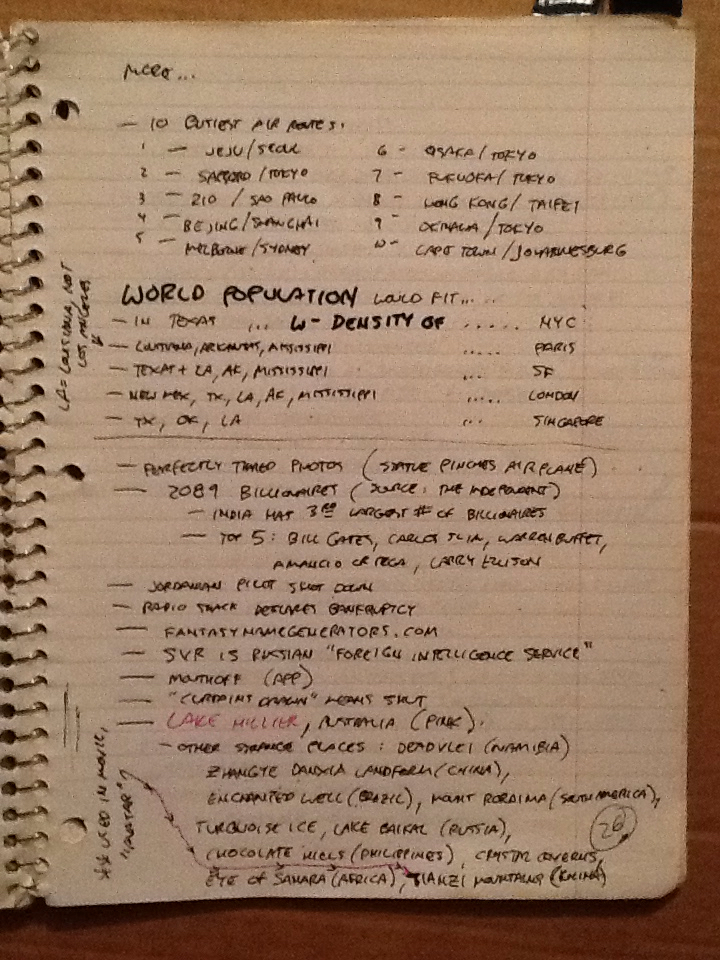 MORE...
— 10 BUSIEST AIR ROUTES:
1 — JEJU/SEOUL
2 — SAPPORO/TOKYO
3 — RIO / SAO PAULO
4 — BEJING/SHANGHAI
5 — MELBORNE/SYDNEY
6 - OSAKA/TOKYO
7 - FUKUOKA/TOKYO
8 - HONG KONG/TAIPEI
9 - OKINAWA/TOKYO
10 - CAPE TOWN/JOHANNESBURG
WORLD POPULATION COULD FIT....
— IN TEXAS ... W- DENSITY OF ..... NYC
— LOUISIANA, ARKANSAS, MISSISSIPPI ..... PARIS
— TEXAS + LA, AK, MISSISSIPPI ... SF
— NEW MEX, TX, LA, AK, MISSISSIPPI ..... LONDON
— TX, OK, LA ... SINGAPORE
LA = LOUISIANA, NOT
LOS ANGELES
— PERFECTLY TIMED PHOTOS (STATUE PINCHES AIRPLANE)
— 2089 BILLIONAIRES (SOURCE: THE INDEPENDENT)
— INDIA HAS 3RD LARGEST # OF BILLIONAIRES
— TOP 5: BILL GATES, CARLOS SLIM, WARREN BUFFET,
AMANCIO ORTEGA, LARRY ELLISON
— JORDANIAN PILOT SHOT DOWN
— RADIO SHACK DECLARES BANKRUPTCY
— FANTASYNAMEGENERATORS.COM
— SVR IS RUSSIAN "FOREIGN INTELLIGENCE SERVICE"
— MOUTHOFF (APP)
— "CURTAINS DRAWN" MEANS SHUT
— LAKE HILLIER, AUSTRALIA (PINK).
— OTHER STRANGE PLACES: DEADVLEI (NAMIBIA)
ZHANGYE DANXIA LANDFORM (CHINA),
ENCHANTED WELL (BRAZIL), MOUNT RORAIMA (SOUTH AMERICA),
TURQUOISE ICE, LAKE BAIKAL (RUSSIA),
CHOCOLATE HILLS (PHILIPPINES), CRYSTAL CAVERNS,
EYE OF SAHARA (AFRICA), TIANZI MOUNTAINS (CHINA)
USED IN MOVIE,
"AVATAR"?
26